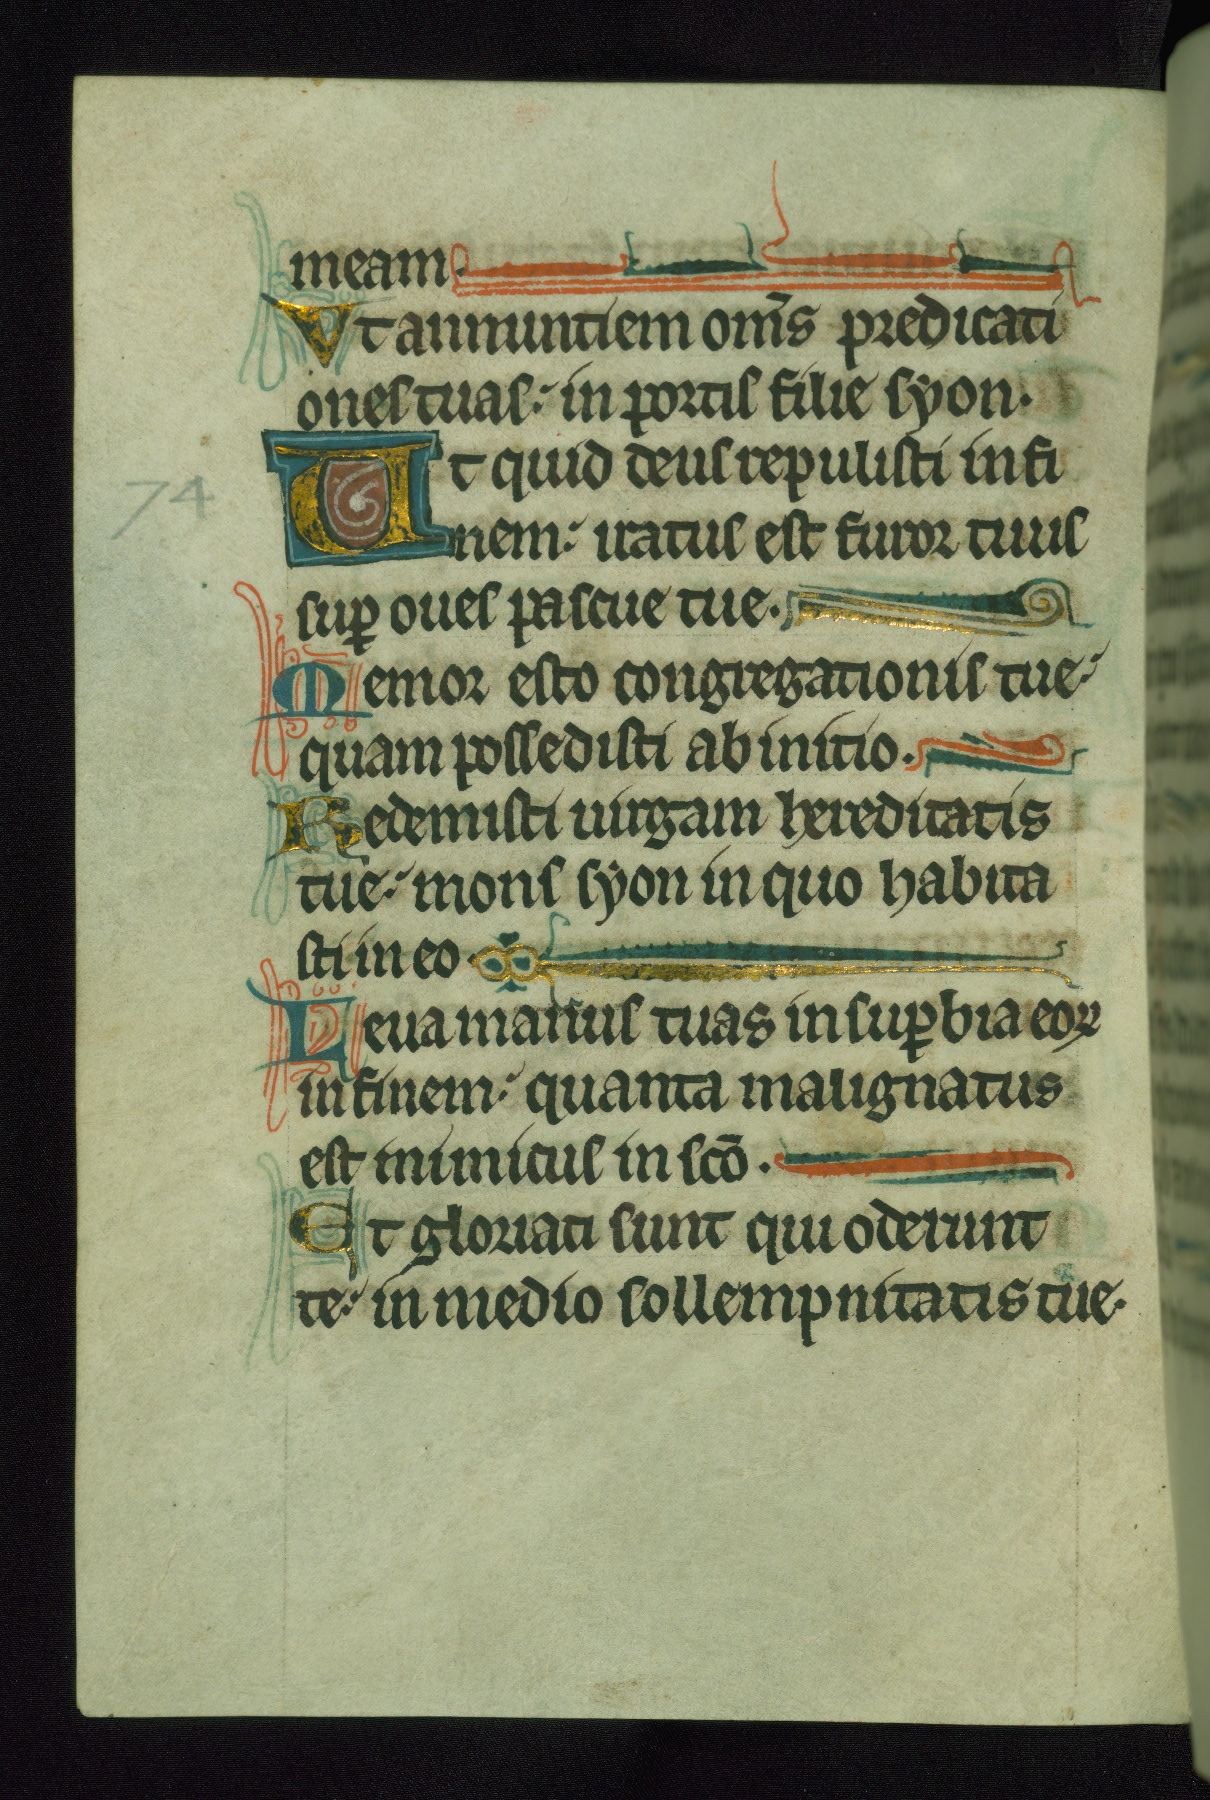 meam
Vt annuntiem om̄s predicati
ones tuas: in portis filie syon.
Ut quid deus repulisti in fi
74
nem: iratus est furor tuus
suꝑ oues pascue tue.
Memor esto congregationis tue:
quam possedisti ab initio.
Redemisti uirgam hereditatis
tue: mons syon in quo habita
sti in eo.
Leua manus tuas in suꝑbia eoꝝ
in finem: quanta malignatus
est inimicus in scō.
Et gloriati sunt qui oderunt
te: in medio sollempnitatis tue.